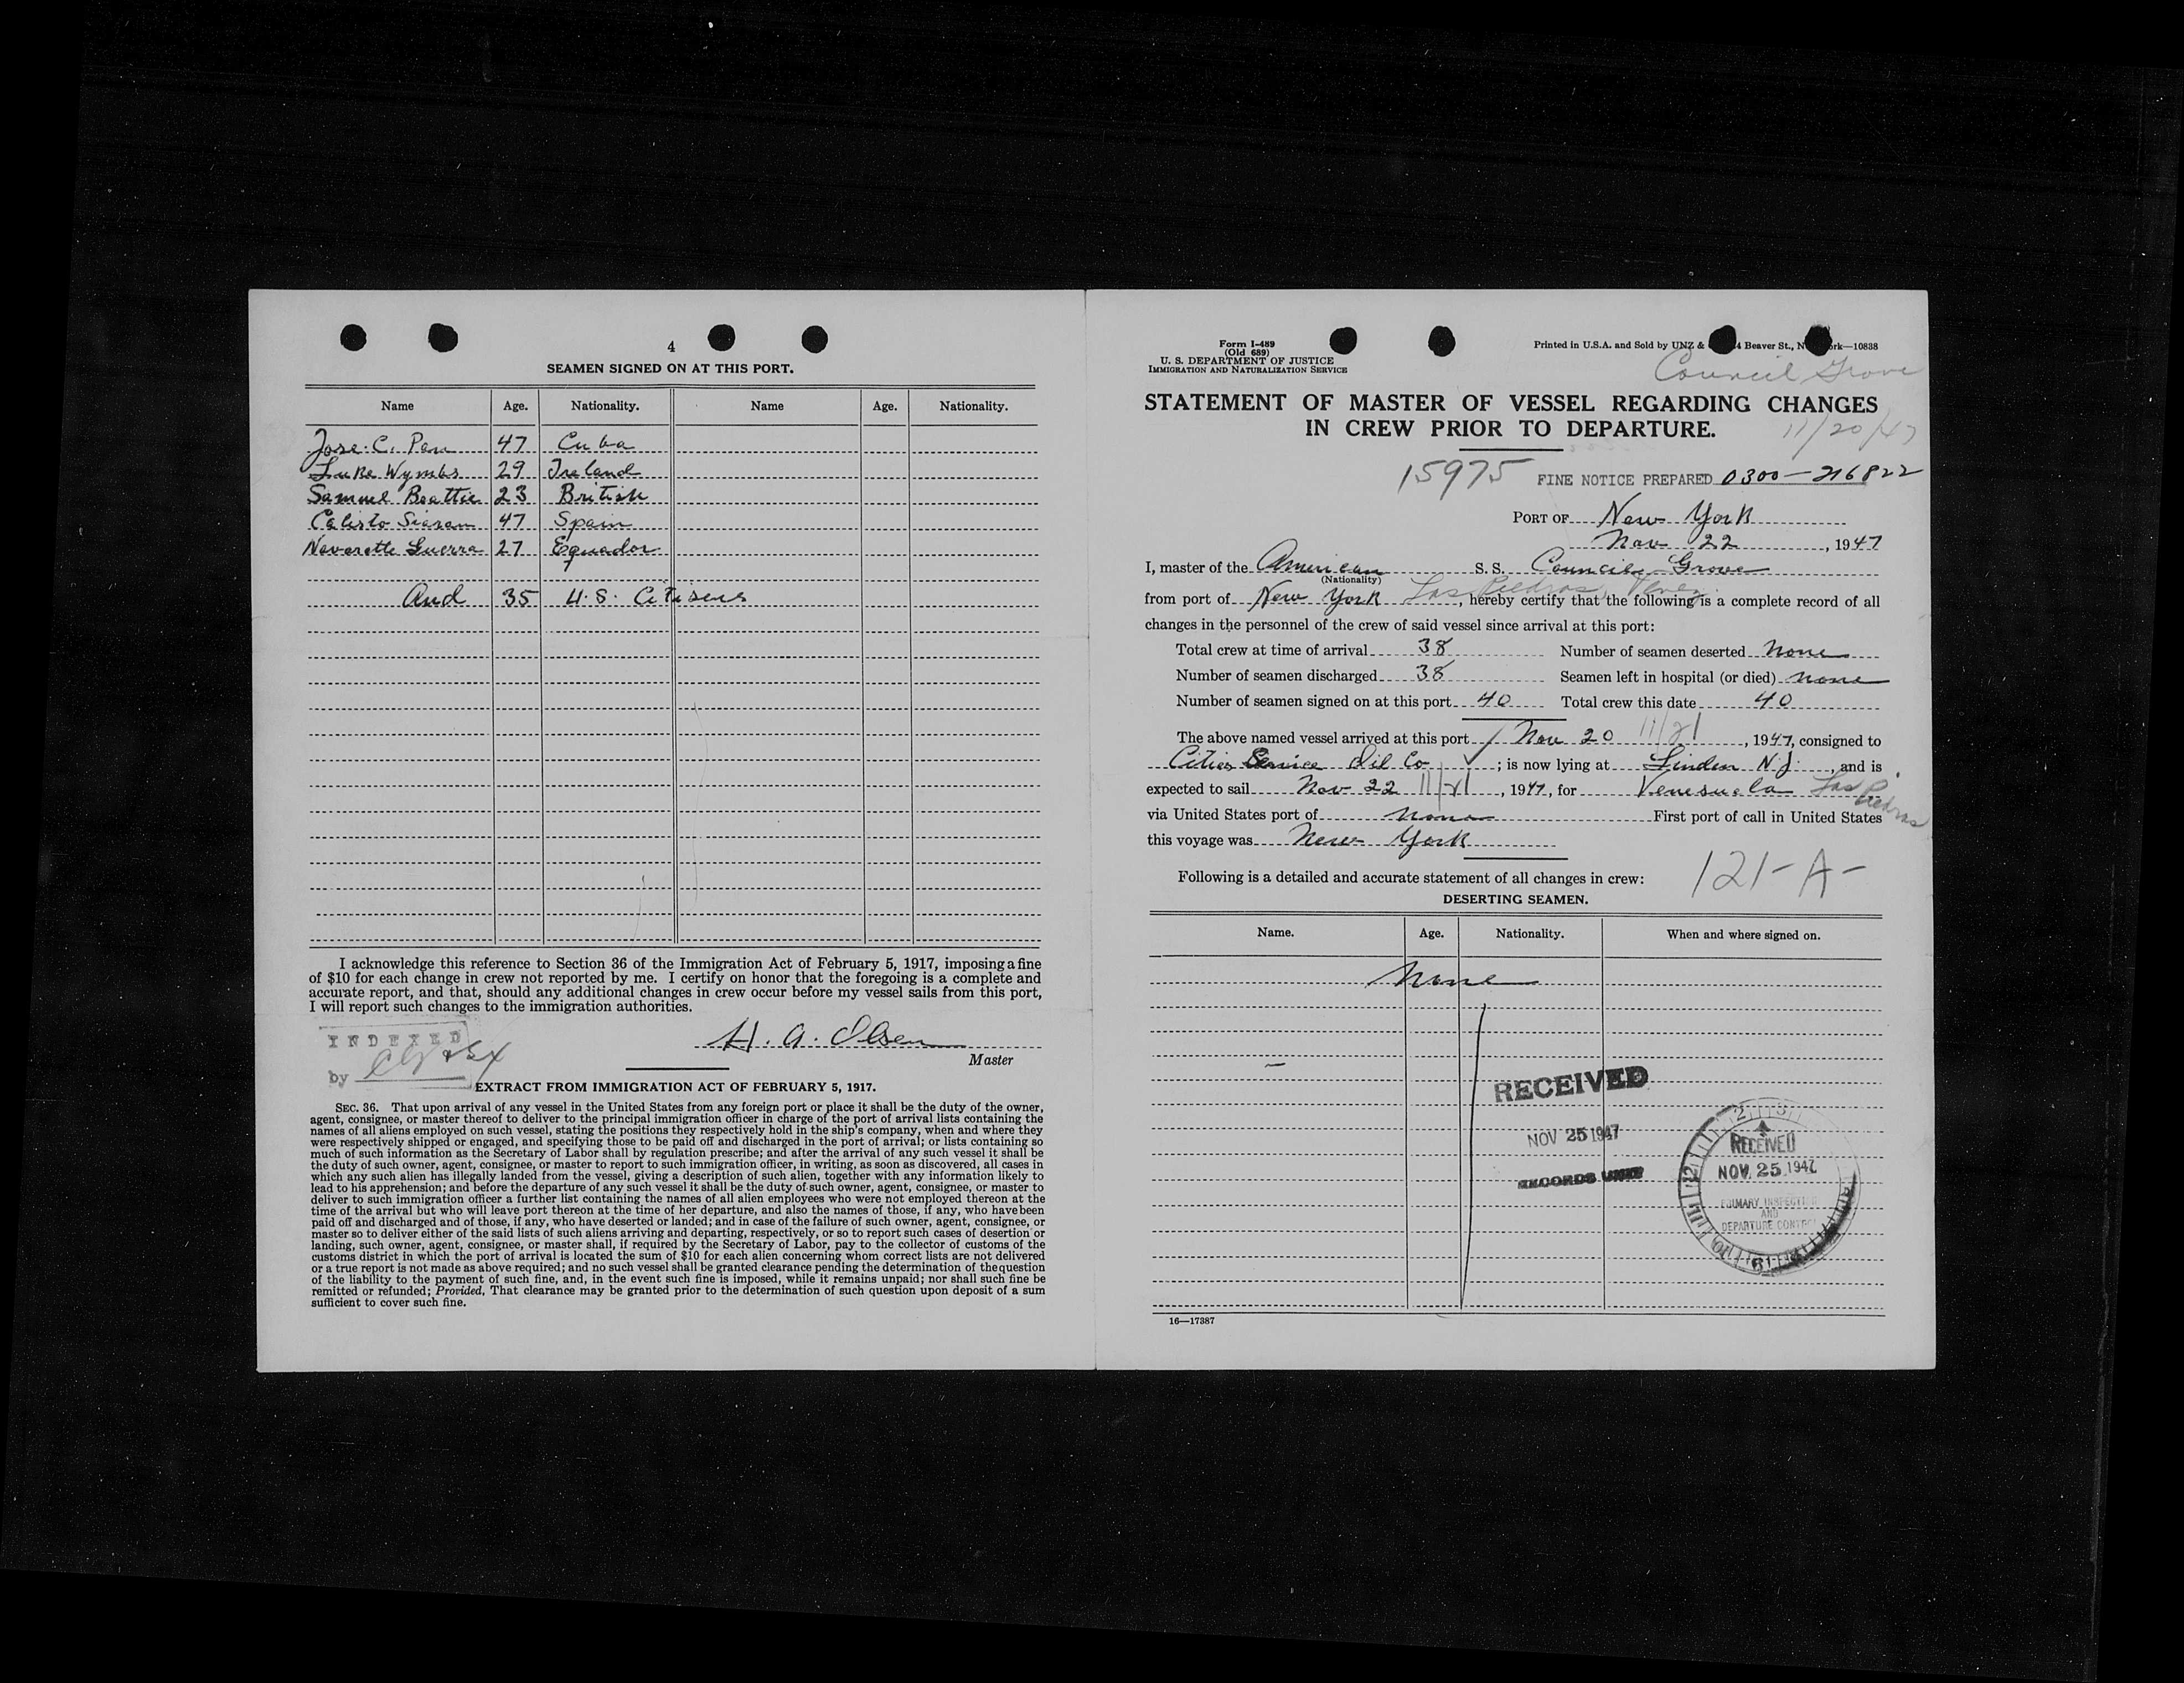 4
SEAMEN SIGNED ON AT THIS PORT.
Name Age. Nationality. Name Age. Nationality.
Jose. C. Pen 47 Cuba
Luke Wymbs 29 Ireland
Samuel Beattie 23 British
Calisto 47 Spain
Naverette Guerra 27 Equador
And 35 U.S. Citisens
I acknowledge this reference to Section 36 of the Immigration Act of February 5, 1917, imposing a fine
of $10 for each change in crew not reported by me. I certify on honor that the foregoing is a complete and
accurate report, and that, should any additional changes in crew occur before my vessel sails from this port,
I will report such changes to the immigration authorities.
INDEXED
by
H. A. Olsen
Master
EXTRACT FROM IMMIGRATION ACT OF FEBRUARY 5, 1917.
SEC. 36. That upon arrival of any vessel in the United States from any foreign port or place it shall be the duty of the owner,
agent, consignee, or master thereof to deliver to the principal immigration officer in charge of the port of arrival lists containing the
names of all aliens employed on such vessel, stating the positions they respectively hold in the ship's company, when and where they
were respectively shipped or engaged, and specifying those to be paid off and discharged in the port of arrival; or lists containing so
much of such information as the Secretary of Labor shall by regulation prescribe; and after the arrival of any such vessel it shall be
the duty of such owner, agent, consignee, or master to report to such immigration officer, in writing, as soon as discovered, all cases in
which any such alien has illegally landed from the vessel, giving a description of such alien, together with any information likely to
lead to his apprehension; and before the departure of any such vessel it shall be the duty of such owner, agent, consignee, or master to
deliver to such immigration officer a further list containing the names of all alien employees who were not employed thereon at the
time of the arrival but who will leave port thereon at the time of her departure, and also the names of those, if any, who have been
paid off and discharged and of those, if any, who have deserted or landed; and in case of the failure of such owner, agent, consignee, or
master so to deliver either of the said lists of such aliens arriving and departing, respectively, or so to report such cases of desertion or
landing, such owner, agent, consignee, or master shall, if required by the Secretary of Labor, pay to the collector of customs of the
customs district in which the port of arrival is located the sum of $10 for each alien concerning whom correct lists are not delivered
or a true report is not made as above required; and no such vessel shall be granted clearance pending the determination of the question
of the liability to the payment of such fine, and, in the event such fine is imposed, while it remains unpaid; nor shall such fine be
remitted or refunded; Provided, That clearance may be granted prior to the determination of such question upon deposit of a sum
sufficient to cover such fine.
Form I-489
(Old 689)
U. S. DEPARTMENT OF JUSTICE
IMMIGRATION AND NATURALIZATION SERVICE
Printed in U.S.A. and Sold by UNZ & 4 Beaver St., N ork—10838
Council Grove
STATEMENT OF MASTER OF VESSEL REGARDING CHANGES
IN CREW PRIOR TO DEPARTURE.
11/20/47
15975 FINE NOTICE PREPARED 0300-216822
PORT OF New York
Nov 22, 1947
I, master of the American S. S. Council Grove
(Nationality)
from port of New York Las Piedras, Venez., hereby certify that the following is a complete record of all
changes in the personnel of the crew of said vessel since arrival at this port:
Total crew at time of arrival 38 Number of seamen deserted None
Number of seamen discharged 38 Seamen left in hospital (or died) none
Number of seamen signed on at this port 40 Total crew this date 40
The above named vessel arrived at this port Nov 20 11/21, 1947, consigned to
Cities Service Oil Co; is now lying at Linden N J, and is
expected to sail Nov 22 11/21, 1947, for Venesuela Las Piedras
via United States port of none First port of call in United States
this voyage was New York
Following is a detailed and accurate statement of all changes in crew:
121-A-
DESERTING SEAMEN.
Name. Age. Nationality. When and where signed on.
None
RECEIVED
NOV 25 1947
RECORDS UNIT
RECEIVED
NOV. 25. 1947
PRIMARY INSPECTION
AND
DEPARTURE CONTROL
16—17387